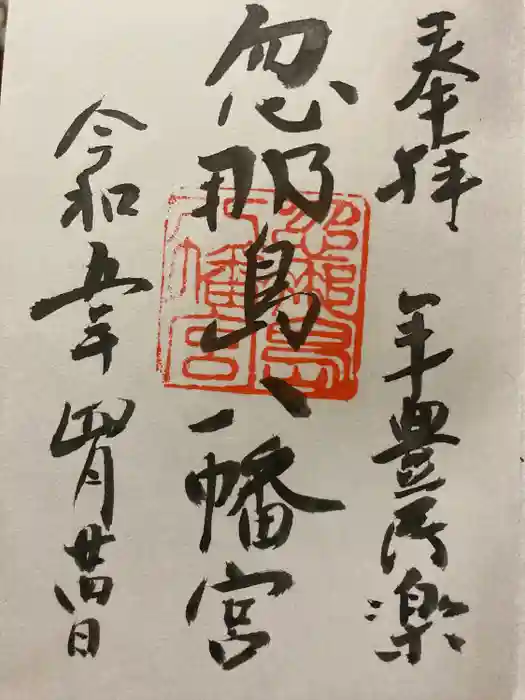 奉拝 年豊楽
忽那島八幡宮
令和五年四月廿四日
忽那島
八幡宮